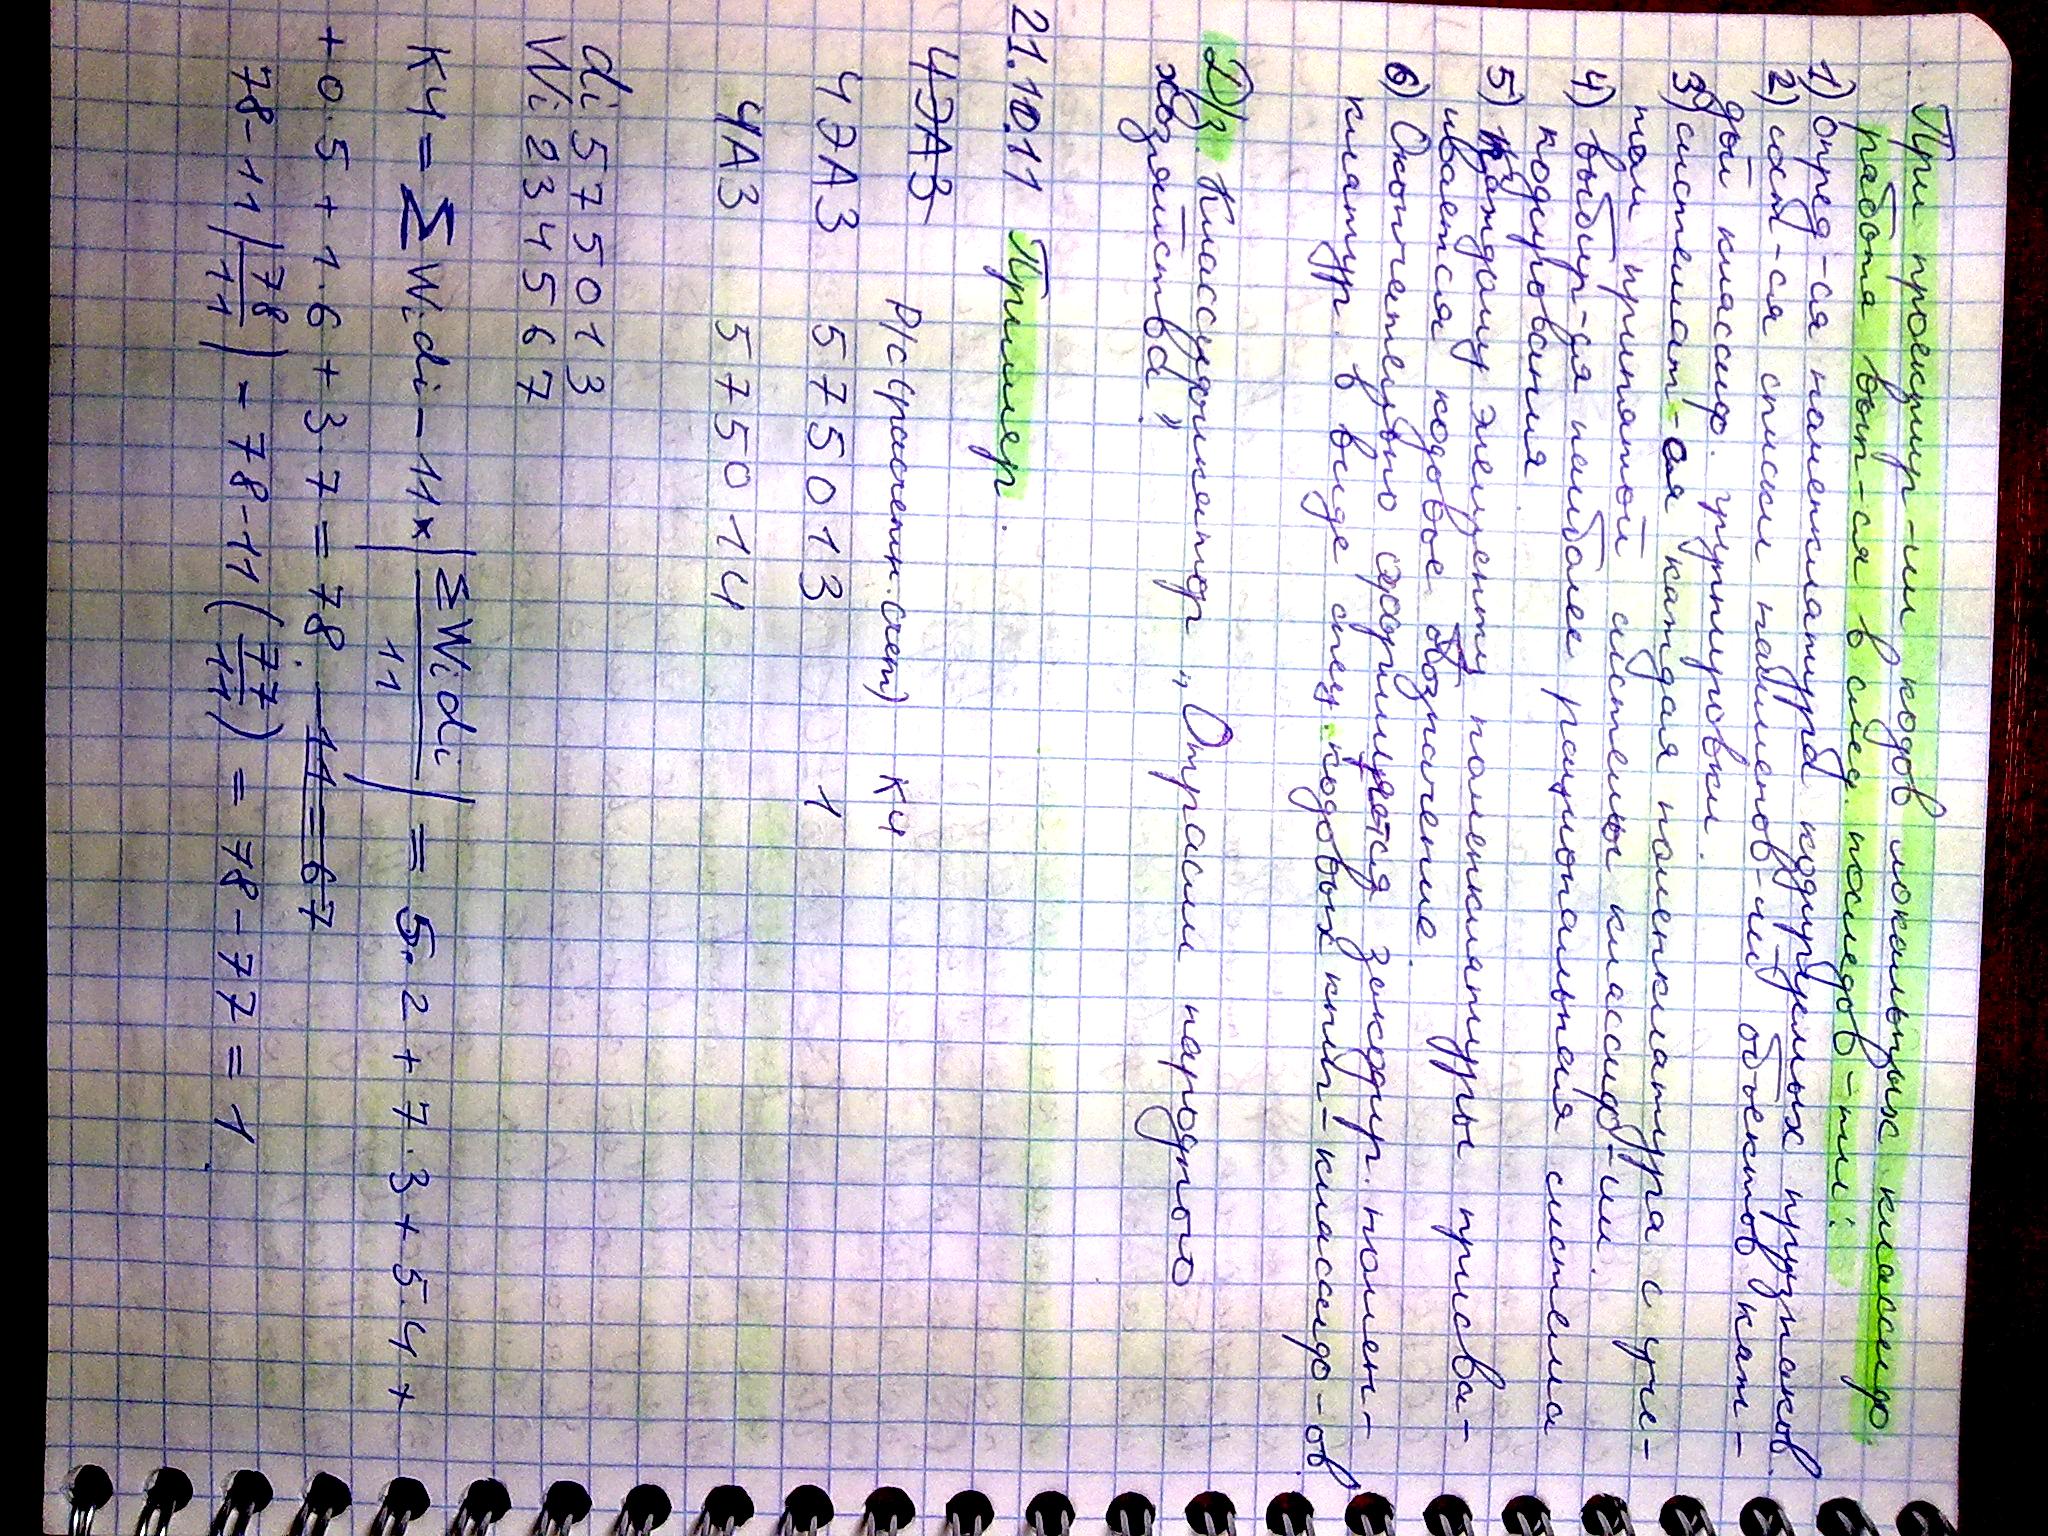 При проектир-ии кодов локальных классиф.
работа вып-ся в след. последов-ти:
1) опред-ся номенклатура кодируемых признаков.
2) сост-ся списки наименов-ий объектов каж-
дой классиф. группировки.
3) системат-ся каждая номенклатура с уче-
том принятой системы классиф-ии.
4) выбир-ся наиболее рациональная система
кодирования
5) каждому элементу номенклатуры присва-
ивается кодовое обозначение.
6) Окончательно оформляется закодир. номен-
клатур. в виде спец. кодовых книг-классиф-ов.
Д/з. Классификатор „Отрасли народного
хозяйства”
21.10.11 Пример.
ЧЭАЗ Р/с (расчетн. счет) Кч
ЧЭАЗ 5 7 5 0 1 3 1
ЧАЗ 5 7 5 0 1 4
di 5 7 5 0 1 3
Wi 2 3 4 5 6 7
Кч = ΣWidi - 11 × | ΣWidi / 11 | = 5·2 + 7·3 + 5·4 +
+ 0·5 + 1·6 + 3·7 = 78. 11 = 67
78 - 11 ( 78 / 11 ) = 78 - 11 ( 77 / 11 ) = 78 - 77 = 1